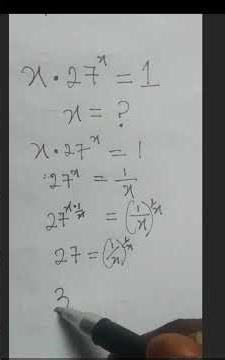 x · 27^x = 1
x = ?
x · 27^x = 1
∴ 27^x = 1/x
27^(x · 1/x) = (1/x)^(1/x)
27 = (1/x)^(1/x)
3